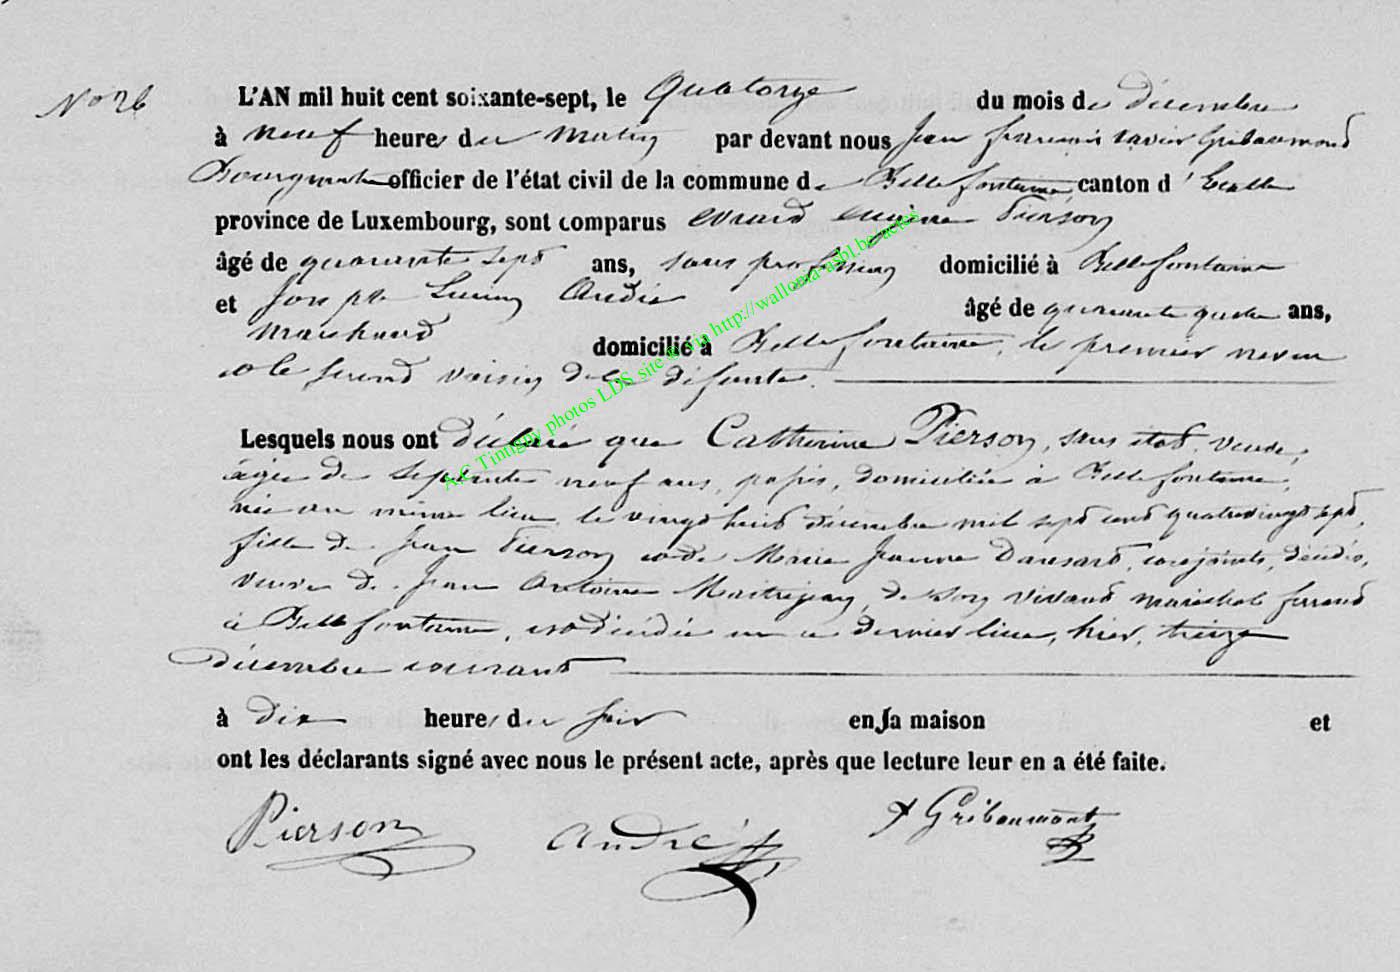 No 26
L'AN mil huit cent soixante-sept, le Quatorze du mois de décembre
à neuf heures du matin par devant nous Jean françois xavier Gribaumont
Bourgmestre officier de l'état civil de la commune de Bellefontaine canton d'Etalle
province de Luxembourg, sont comparus evrard eugène Pierson
âgé de quarante sept ans, sans profession domicilié à Bellefontaine
et Joseph Lucien André âgé de quarante quatre ans,
marchand domicilié à Bellefontaine, le premier neveu
et le second voisin de la défunte.
Lesquels nous ont déclaré que Catherine Pierson, sans état, veuve,
âgée de septante neuf ans, passés, domiciliée à Bellefontaine,
née au même lieu le vingt huit décembre mil sept cent quatrevingt sept,
fille de Jean Pierson et de Marie Jeanne Dansard, conjoints, décédés,
veuve de Jean Antoine Maitrejean, de son vivant maréchal ferrand
à Bellefontaine, est décédée en ce dernier lieu, hier, treize
décembre courant
à dix heures du soir en sa maison et
ont les déclarants signé avec nous le présent acte, après que lecture leur en a été faite.
Pierson André Gribaumont
A.C Tintigny photos LDS site © via http://wallonia-asbl.be/actes